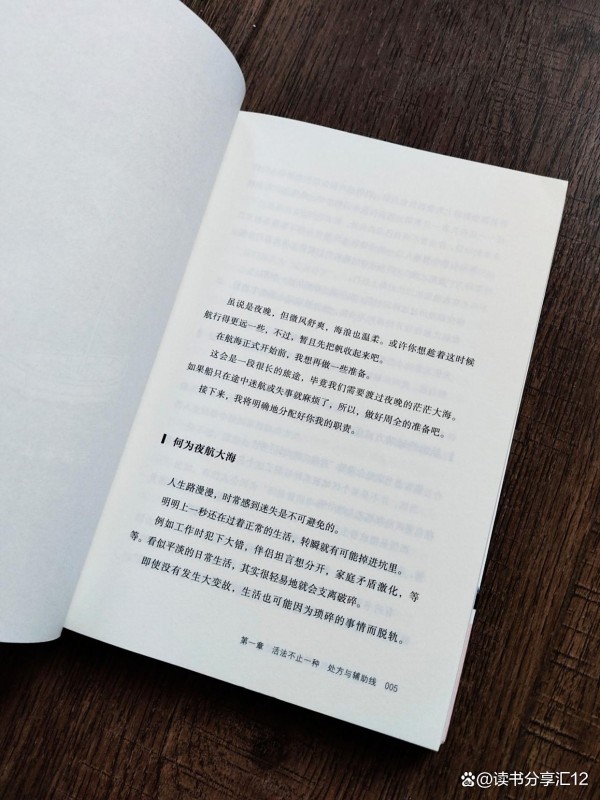 虽说是夜晚，但微风舒爽，海浪也温柔。或许你想趁着这时候
航行得更远一些，不过，暂且先把帆收起来吧。
在航海正式开始前，我想再做一些准备。
这会是一段很长的旅途，毕竟我们需要渡过夜晚的茫茫大海。
如果船只在途中迷航或失事就麻烦了，所以，做好周全的准备吧。
接下来，我将明确地分配好你我的职责。
何为夜航大海
人生路漫漫，时常感到迷失是不可避免的。
明明上一秒还在过着正常的生活，转瞬就有可能掉进坑里。
例如工作时犯下大错，伴侣坦言想分开，家庭矛盾激化，等
等。看似平淡的日常生活，其实很轻易地就会支离破碎。
即使没有发生大变故，生活也可能因为琐碎的事情而脱轨。
第一章 活法不止一种 处方与辅助线 005
@读书分享汇12